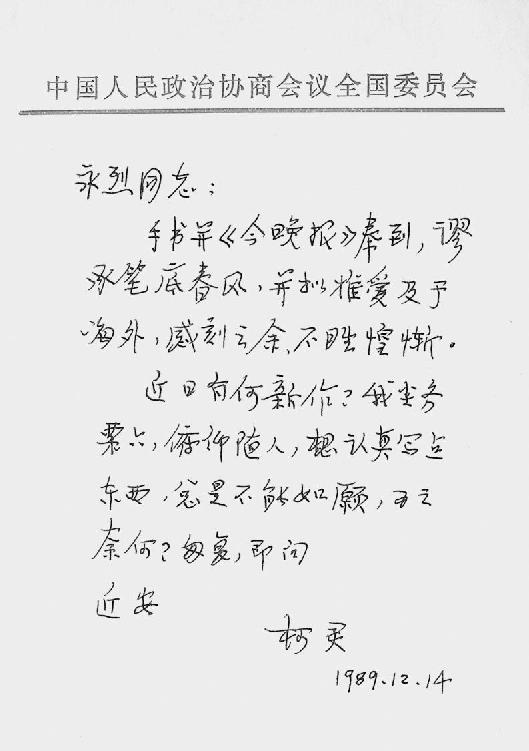 中国人民政治协商会议全国委员会
永烈同志：
手书并《今晚报》奉到，谬
承笔底春风，并拟推爱及于
海外，感刻之余、不胜惶惭。
近日有何新作？我坐务
票六，俯仰随人，想认真写点
东西，总是不能如愿，
奈何？匆复，即问
近安
柯灵
1989.12.14